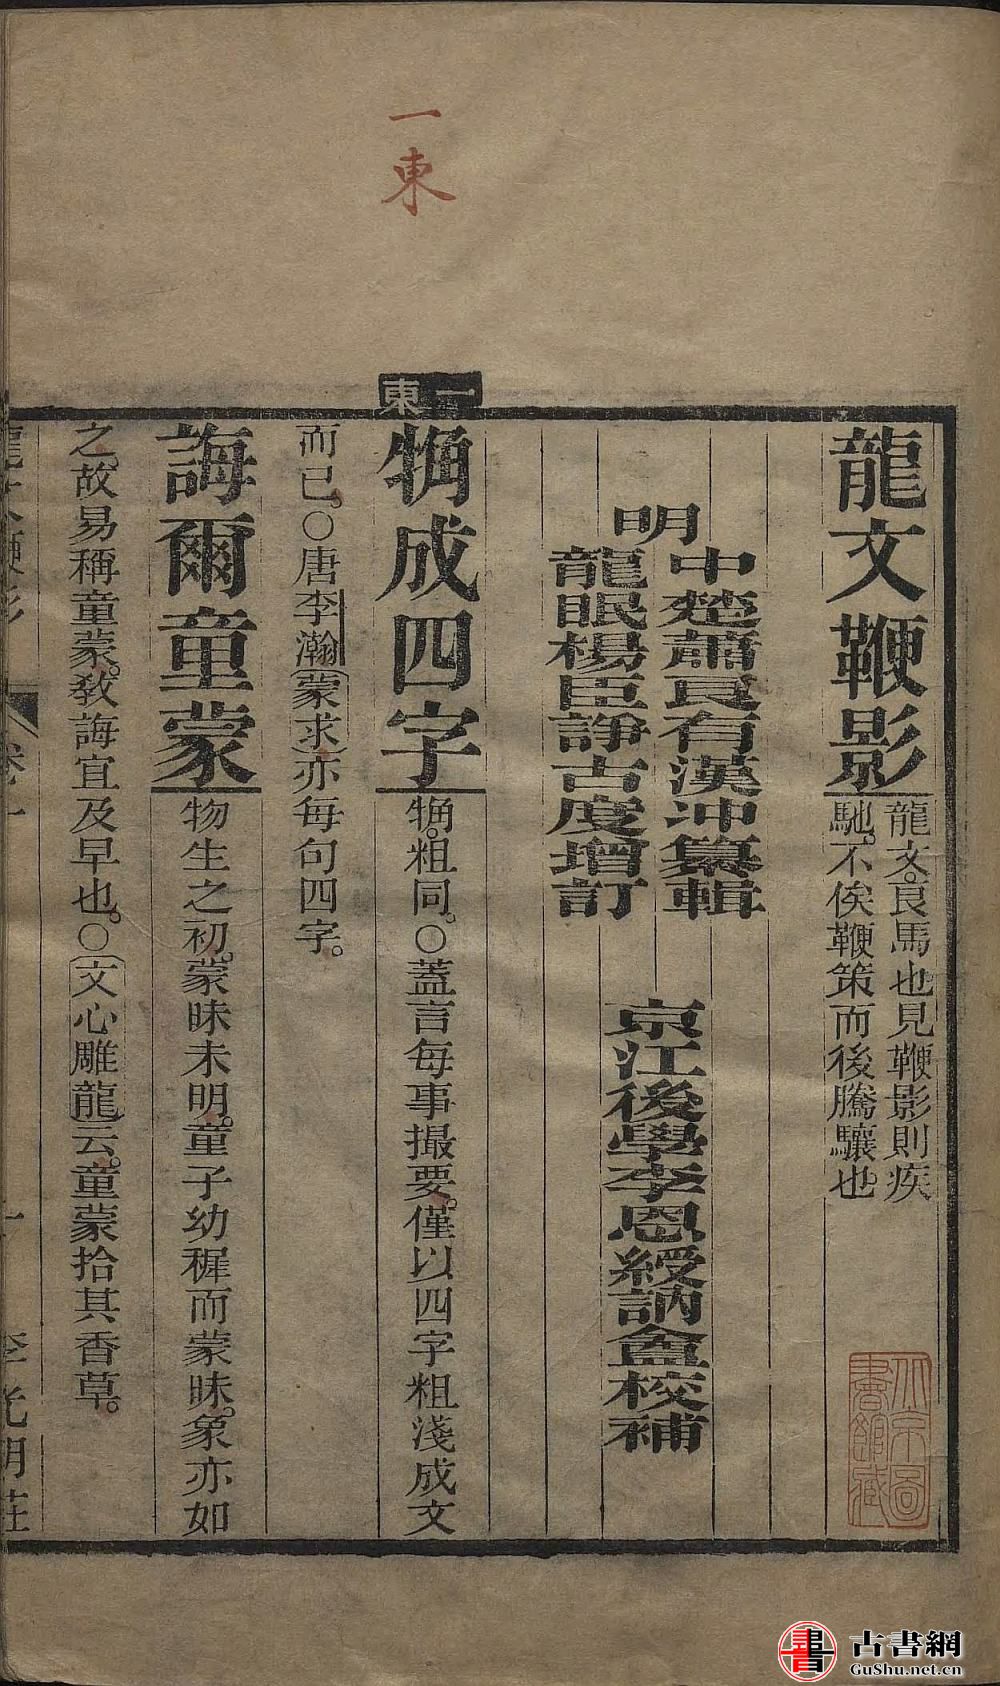 一東
一東
龍文鞭影
龍文。良馬也見鞭影則疾
馳。不俟鞭策而後騰驤也。
明
中楚蕭良有漢冲纂輯
龍眠楊臣諍古度增訂
京江後學李恩綬訥盦校補
觕成四字
觕。粗同。○蓋言每事撮要。僅以四字粗淺成文
而已。○唐李瀚蒙求亦每句四字。
誨爾童蒙
物生之初。蒙昧未明。童子幼穉而蒙昧。象亦如
之。故易稱童蒙。敎誨宜及早也。○文心雕龍云。童蒙拾其香草。
龍文鞭影
卷一
一
李光明莊
古書網
GuShu.net.cn